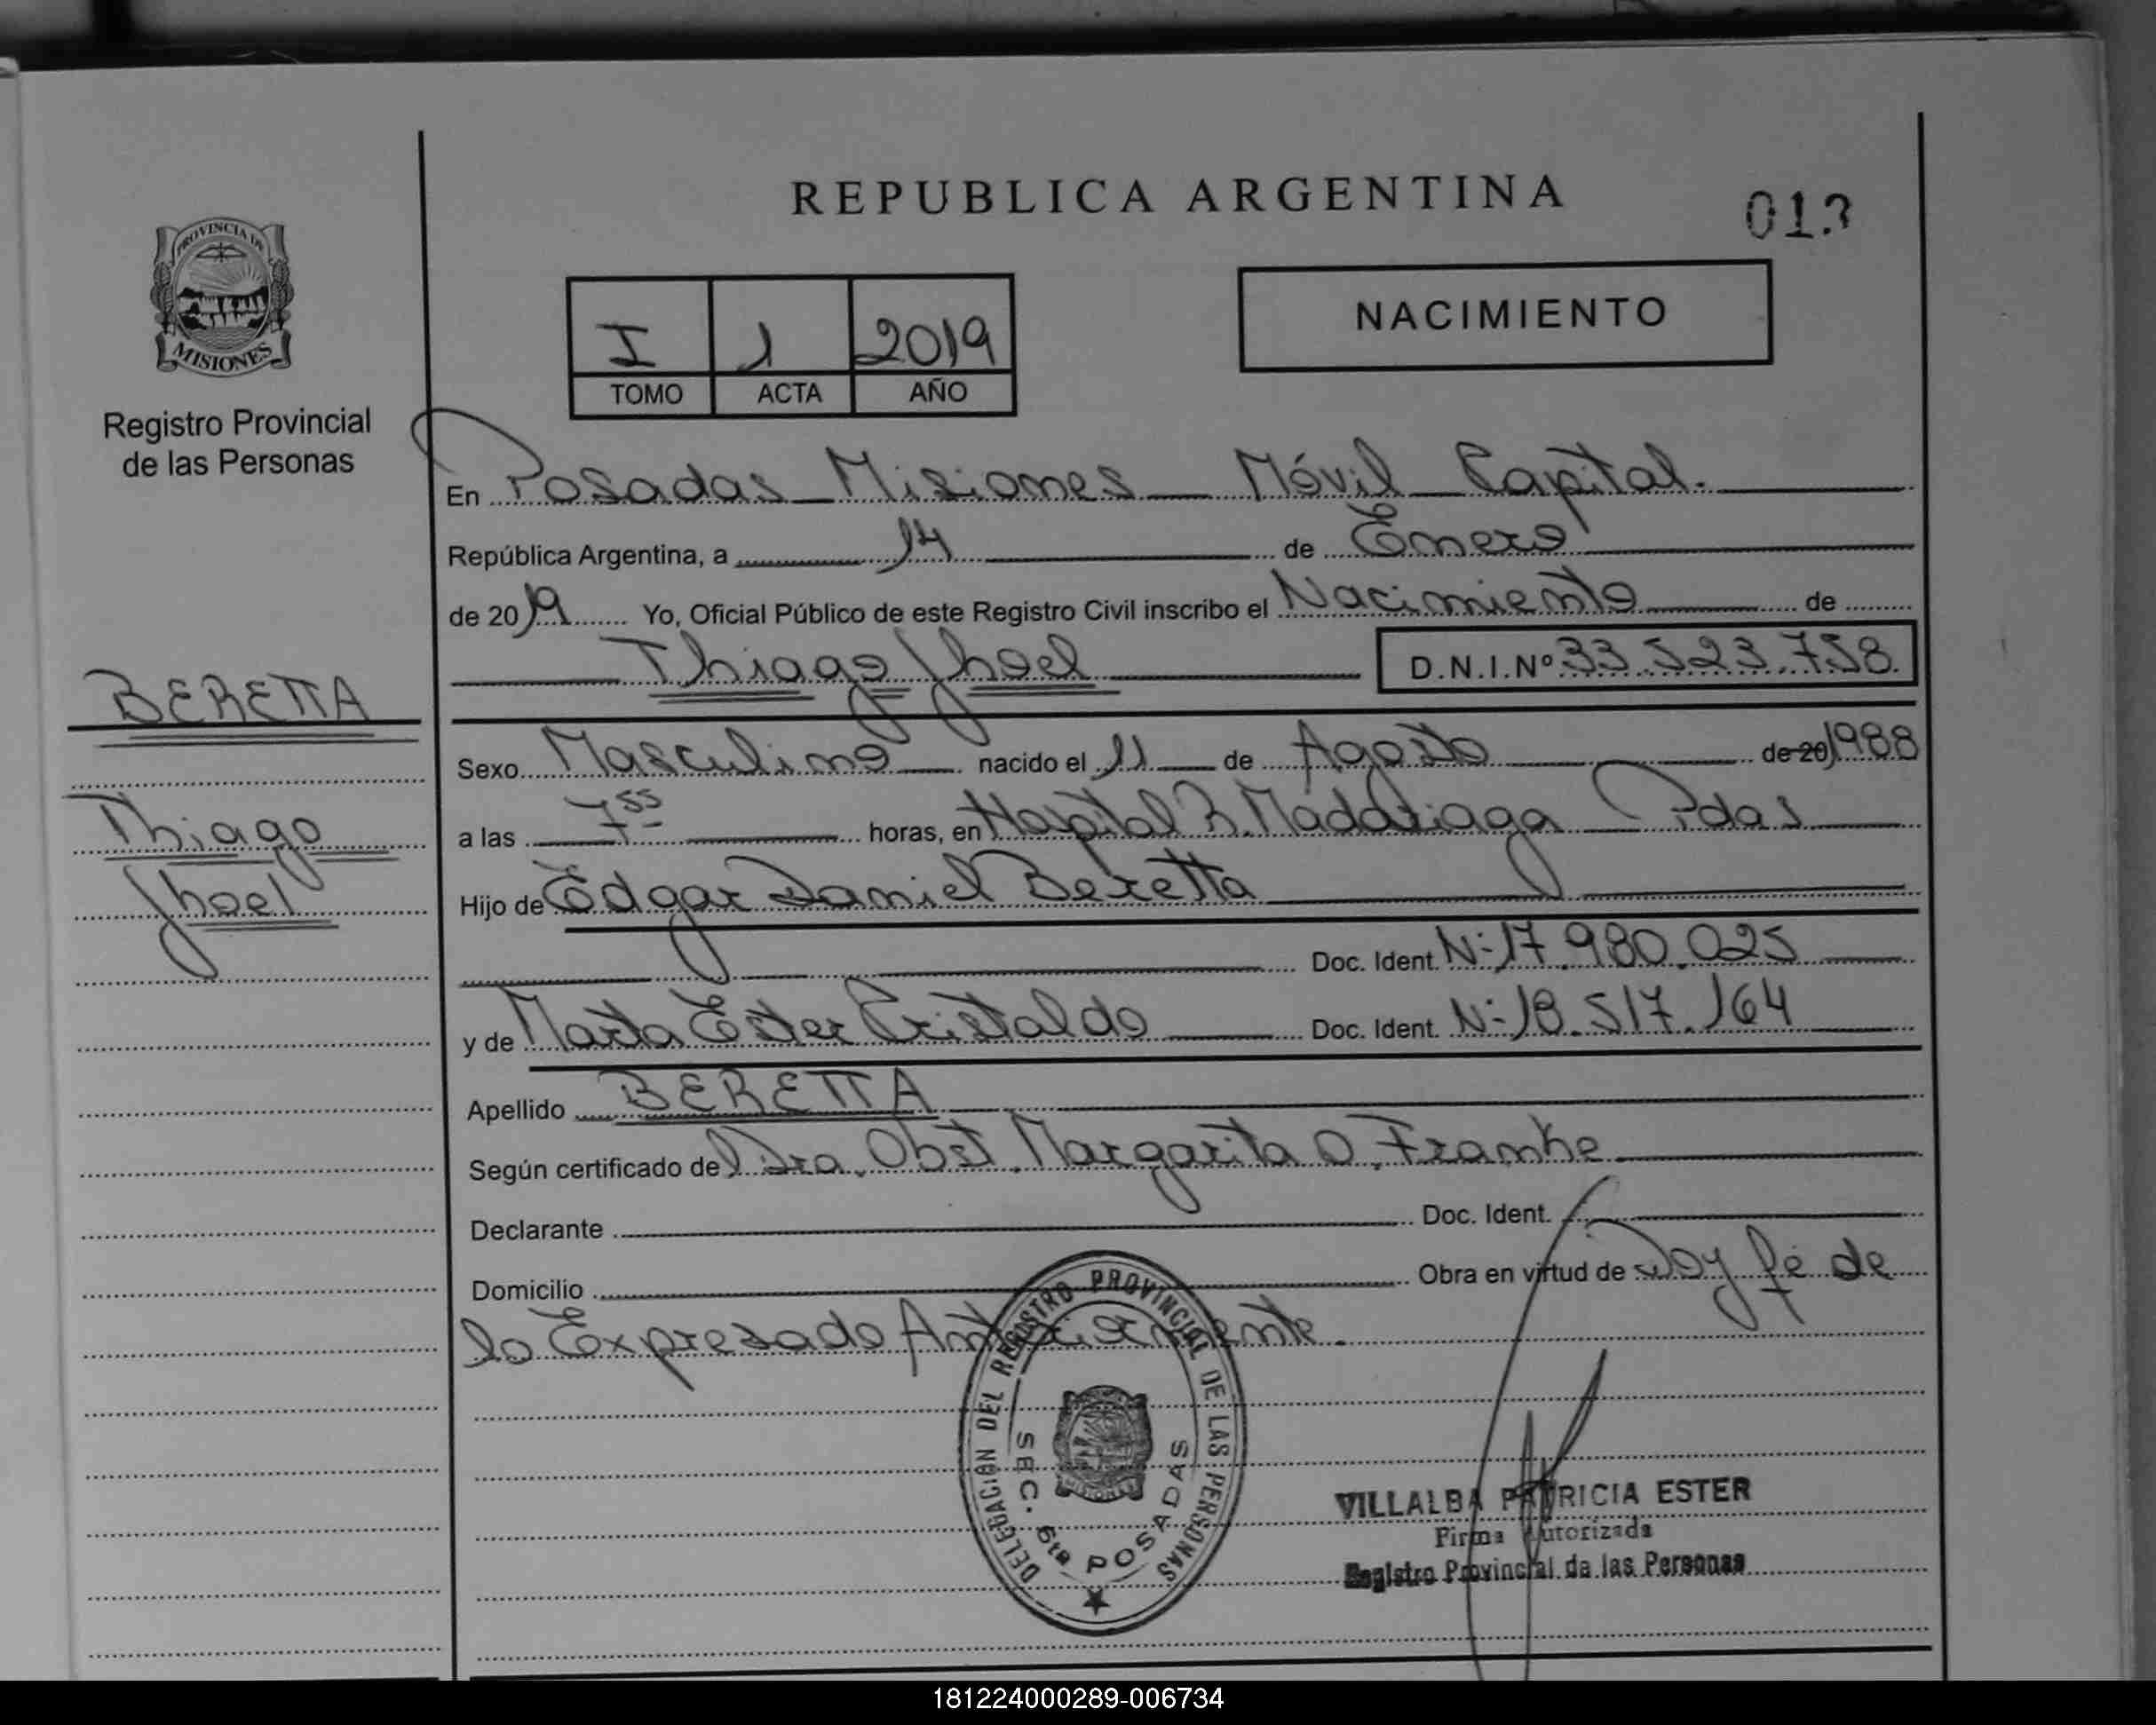 REPUBLICA ARGENTINA
013
PROVINCIA DE
MISIONES
Registro Provincial
de las Personas
I 1 2019
TOMO ACTA AÑO
NACIMIENTO
En Posadas Misiones Móvil Capital.
República Argentina, a 14 de Enero
de 2019 Yo, Oficial Público de este Registro Civil inscribo el Nacimiento de
Thiago Jhoel D.N.I.Nº 33.523.758
BERETTA
Thiago
Jhoel
Sexo Masculino nacido el 11 de Agosto de 20 1988
a las 7 55 horas, en Hospital R. Madariaga Pdas
Hijo de Edgar Daniel Beretta
Doc. Ident. Nº 17.980.025
y de Marta Ester Cristaldo Doc. Ident. Nº 18.517.164
Apellido BERETTA
Según certificado del Dra. Obst. Margarita O. Franke
Declarante Doc. Ident.
Domicilio Obra en virtud de Doy fé de
lo Expresado Anteriormente.
DELEGACION DEL REGISTRO PROVINCIAL DE LAS PERSONAS
SEC. 6ta POSADAS
VILLALBA PATRICIA ESTER
Firma Autorizada
Registro Provincial de las Personas
181224000289-006734